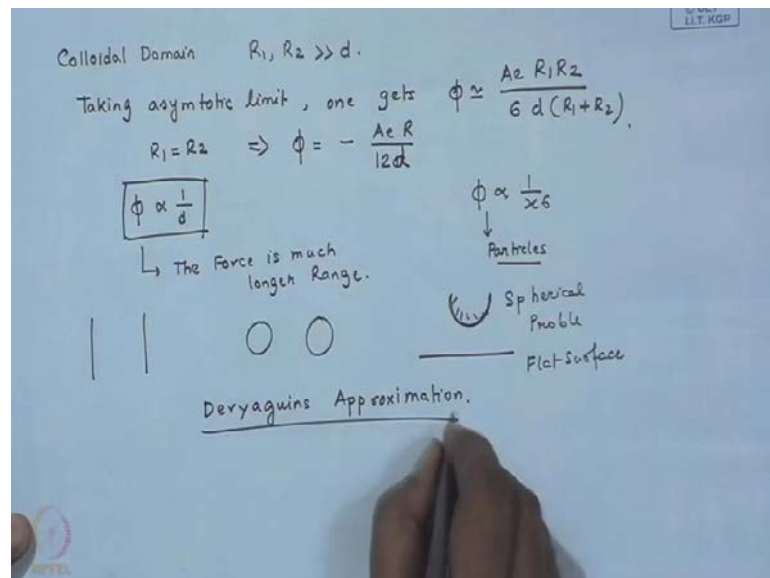 © CET
I.I.T. KGP
Colloidal Domain R₁, R₂ >> d.
Taking asymtotic limit, one gets ϕ ≃ Ac R₁R₂ / 6 d (R₁+R₂).
R₁ = R₂ ⇒ ϕ = - Ac R / 12d
ϕ ∝ 1/d
ϕ ∝ 1/x6
Particles
↳ The Force is much
longer Range.
Spherical
Proble
Flat Surface
Deryaguins Approximation.
NPTEL